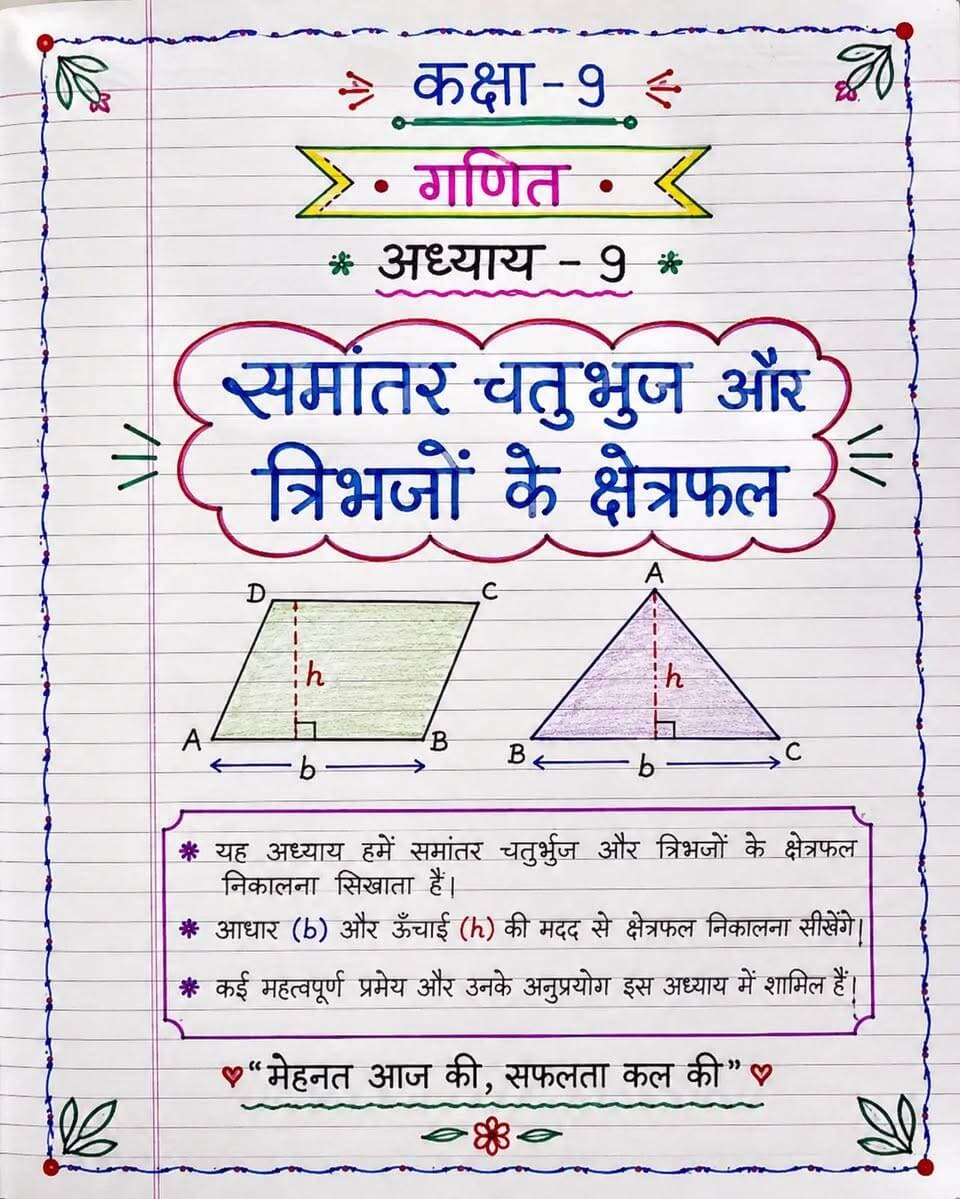 कक्षा - 9
गणित
अध्याय - 9
समांतर चतुभुज और
त्रिभजों के क्षेत्रफल
D C
h
A B
b
A
h
B C
b
यह अध्याय हमें समांतर चतुर्भुज और त्रिभजों के क्षेत्रफल
निकालना सिखाता हैं।
आधार (b) और ऊँचाई (h) की मदद से क्षेत्रफल निकालना सीखेंगे।
कई महत्वपूर्ण प्रमेय और उनके अनुप्रयोग इस अध्याय में शामिल हैं।
"मेहनत आज की, सफलता कल की"